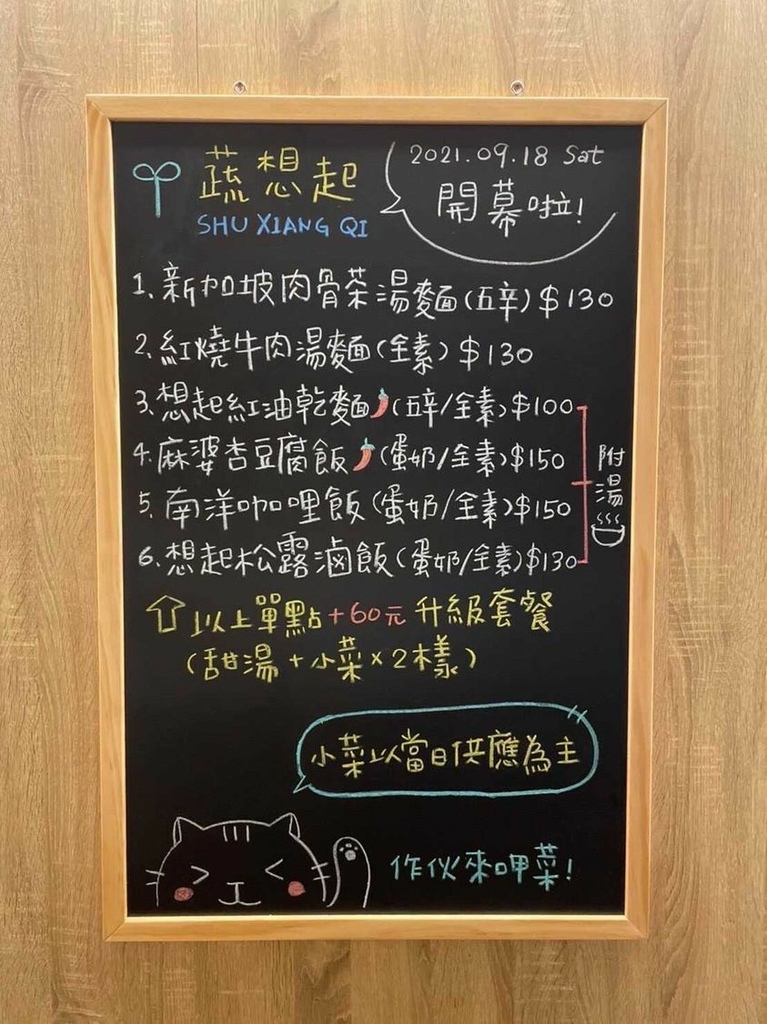 蔬想起
SHU XIANG QI
2021.09.18 Sat
開幕啦!
1.新加坡肉骨茶湯麵(五辛)$130
2.紅燒牛肉湯麵(全素)$130
3.想起紅油乾麵(五辛/全素)$100
4.麻婆杏豆腐飯(蛋奶/全素)$150
5.南洋咖哩飯(蛋奶/全素)$150
6.想起松露滷飯(蛋奶/全素)$130
附湯
以上單點+60元升級套餐
(甜湯+小菜×2樣)
小菜以當日供應為主
作伙來呷菜!